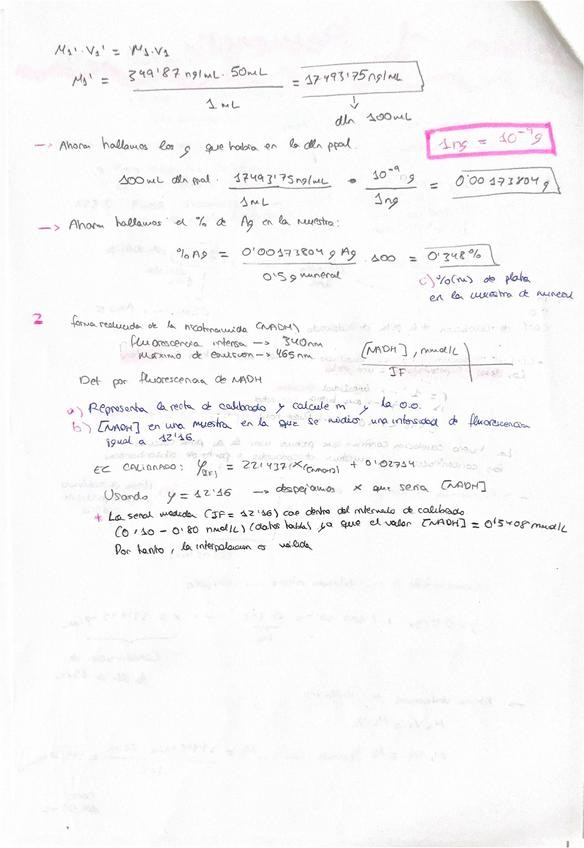 M1'. V1' = M1. V1
M1' = 349'87 ng/mL . 50mL / 1 mL = 17493'75 ng/mL
dln 100mL
→ Ahora hallamos los g que habra en la dln ppal.
1 ng = 10⁻⁹ g
100 mL dln ppal. 17493'75 ng/mL / 1mL · 10⁻⁹ g / 1ng = 0'00173804 g
→ Ahora hallamos el % de Ag en la muestra:
%Ag = 0'00173804 g Ag / 0'5 g mineral . 100 = 0'348%
c) %(m) de plata
en la muestra de mineral
2 forma reducida de la nicotinamida (NADH)
fluorescencia intensa → 340nm
máximo de emision → 465nm
[NADH], mmol/L
IF
Det por fluorescencia de NADH
a) Representa la recta de calibrado y calcule m y la o.o.
b) [NADH] en una muestra en la que se midio una intensidad de fluorescencion
igual a 12'16.
EC CALIBRADO: y(IF) = 22'437 x + 0'02714
Usando y = 12'16 → despejamos x que seria [NADH]
+ La señal medida (IF = 12'16) cae dentro del intervalo de calibrado
(0,10 - 0'80 mmol/L) (datos tabla) ya que el valor [NADH] = 0'5408 mmol/L
Por tanto, la interpolacion es válida